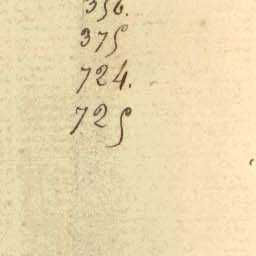 356.
375
724.
725